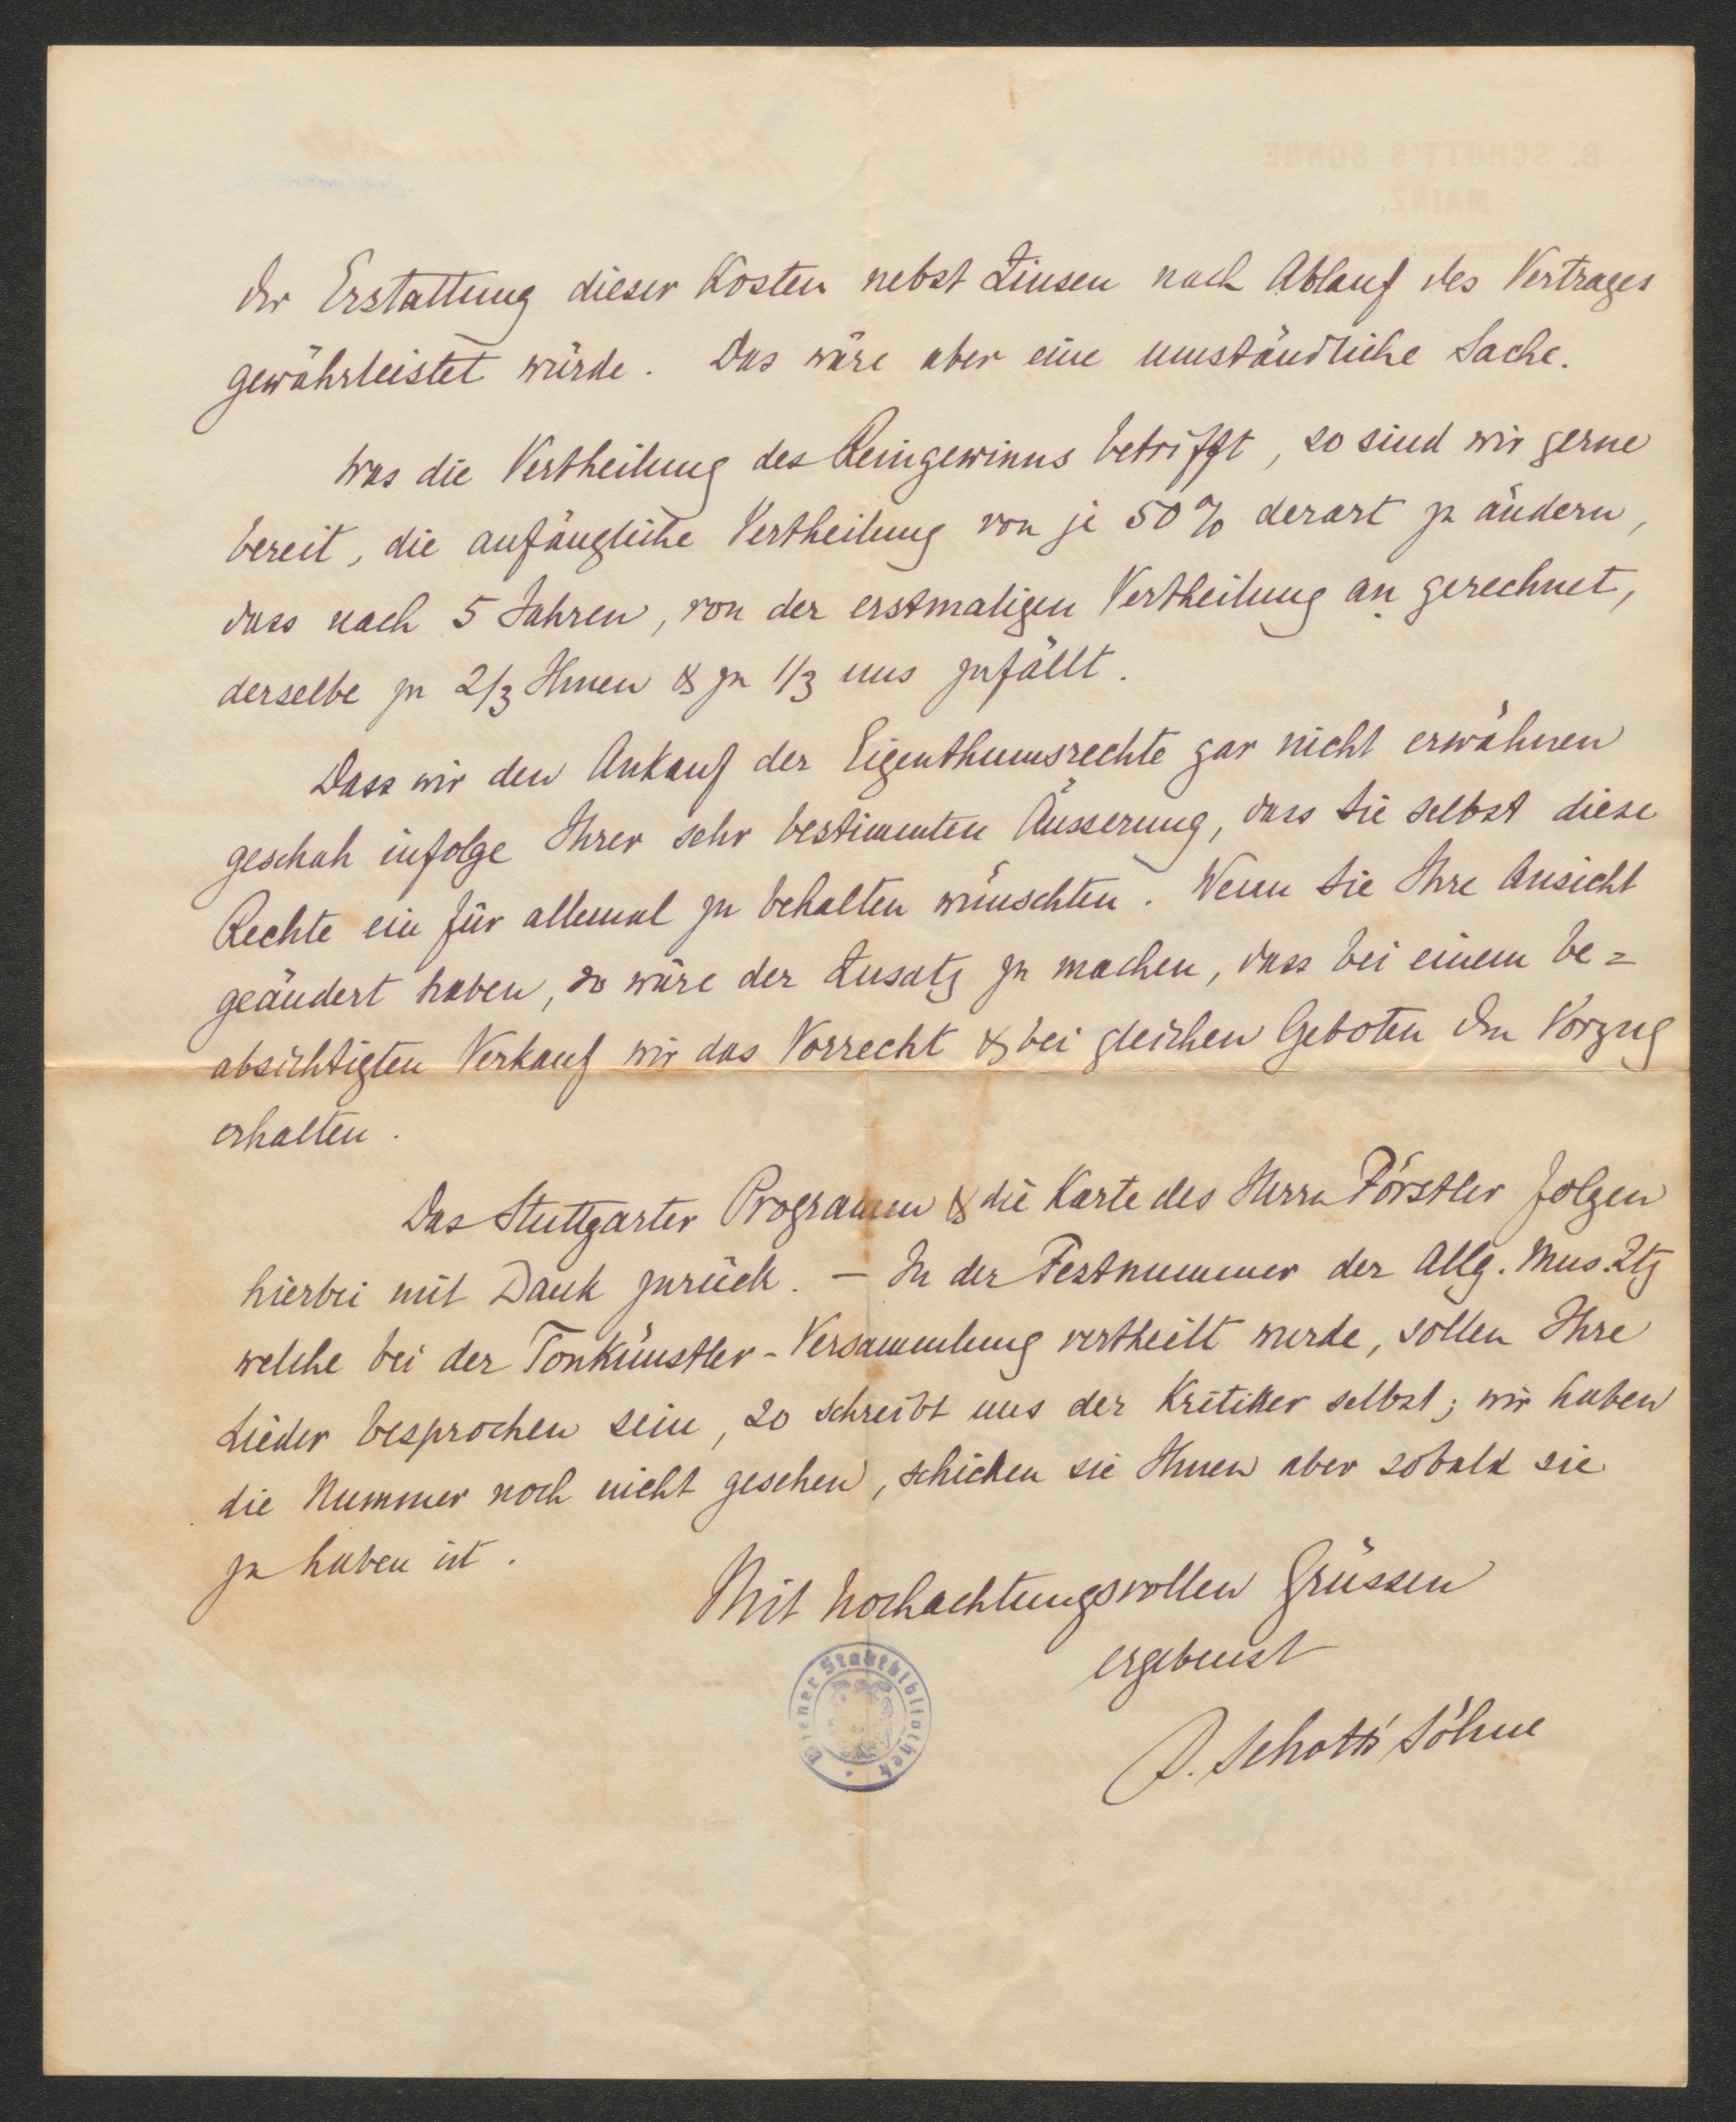 der Erstattung dieser Kosten nebst Zinsen nach Ablauf des Vertrages
gewährleistet würde. Das wäre aber eine umständliche Sache.
Was die Vertheilung des Reingewinns betrifft, so sind wir gerne
bereit, die anfängliche Vertheilung von je 50% derart zu ändern,
dass nach 5 Jahren, von der erstmaligen Vertheilung an gerechnet,
derselbe zu 2/3 Ihnen & zu 1/3 uns zufällt.
Dass wir den Ankauf der Eigenthumsrechte gar nicht erwähnen
geschah infolge Ihrer sehr bestimmten Äusserung, dass Sie selbst diese
Rechte ein für allemal zu behalten wünschten. Wenn Sie Ihre Ansicht
geändert haben, so wäre der Zusatz zu machen, dass bei einem be=
absichtigten Verkauf wir das Vorrecht & bei gleichen Geboten den Vorzug
erhalten.
Das Stuttgarter Programm & die Karte des Herrn Förstler folgen
hierbei mit Dank zurück. – In der Festnummer der Allg. Mus. Ztg
welche bei der Tonkünstler-Versammlung vertheilt wurde, sollen Ihre
Lieder besprochen sein, so schreibt uns der Kritiker selbst; wir haben
die Nummer noch nicht gesehen, schicken sie Ihnen aber sobald sie
zu haben ist.
Mit hochachtungsvollen Grüssen
ergebenst
B. Schott's Söhne
Wiener Stadtbibliothek
B. SCHOTT'S SÖHNE
MAINZ.